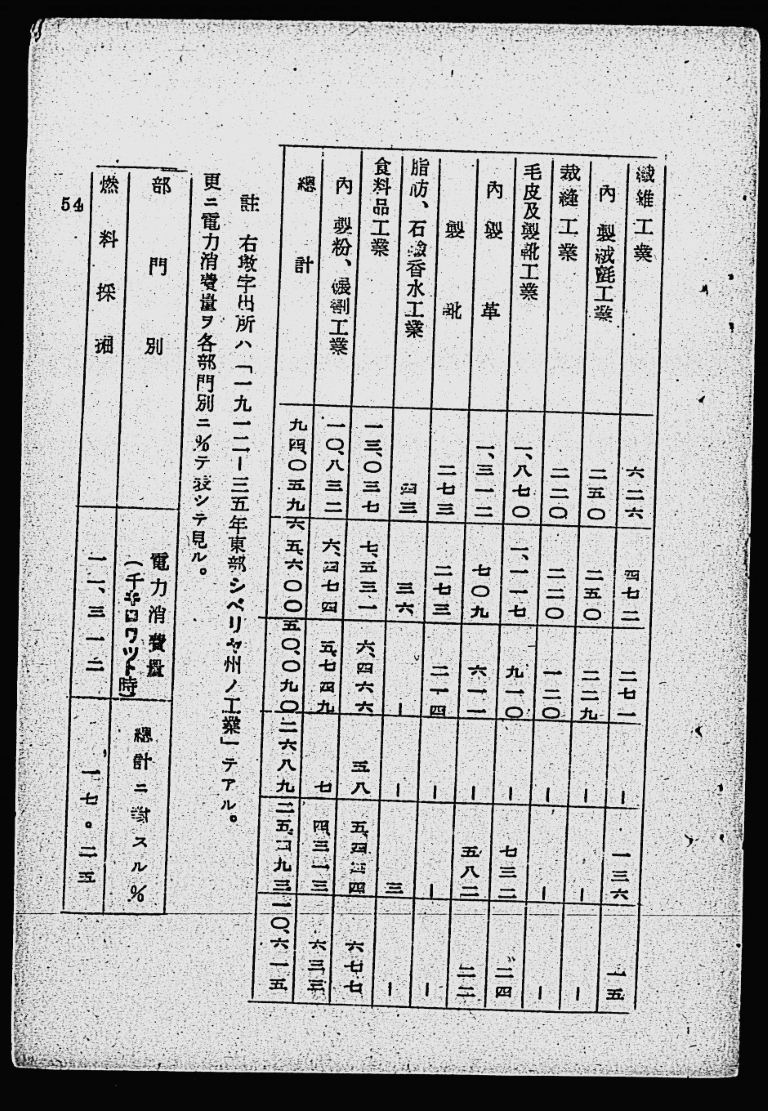 纖維工業 六二六 四七二 二七一 ー 一三六 一五
內 製絨氈工業 二五〇 二五〇 二二九 ー ー ー
裁縫工業 二二〇 二二〇 一二〇 ー ー ー
毛皮及製靴工業 一、八七〇 一、一一七 九一〇 ー 七三二 二四
內 製革 一、三一二 七〇九 六一一 ー 五八二 二二
製靴 二七三 二七三 二一四 ー ー ー
脂肪、石鹼香水工業 四三 三六 ー ー 三 ー
食料品工業 一三、〇三七 七、五三一 六、四六六 三八 六七七
內 製粉、碾割工業 一〇、八三二 六、四七四 五、七四九 七 四、三一三 六三三
總計 九四、〇五九 六五、六〇〇 五〇、〇九〇 二六八九 二五、四九三 一〇、六一五
註 右數字出所ハ「一九一二ー三五年東部シベリヤ州ノ工業」テアル。
更ニ電力消費量ヲ各部門別ニ%テ表シテ見ル。
部門別 電力消費量(千キロワツト時) 總計ニ對スル%
燃料採掘 一一、三一二 一七。二五
54